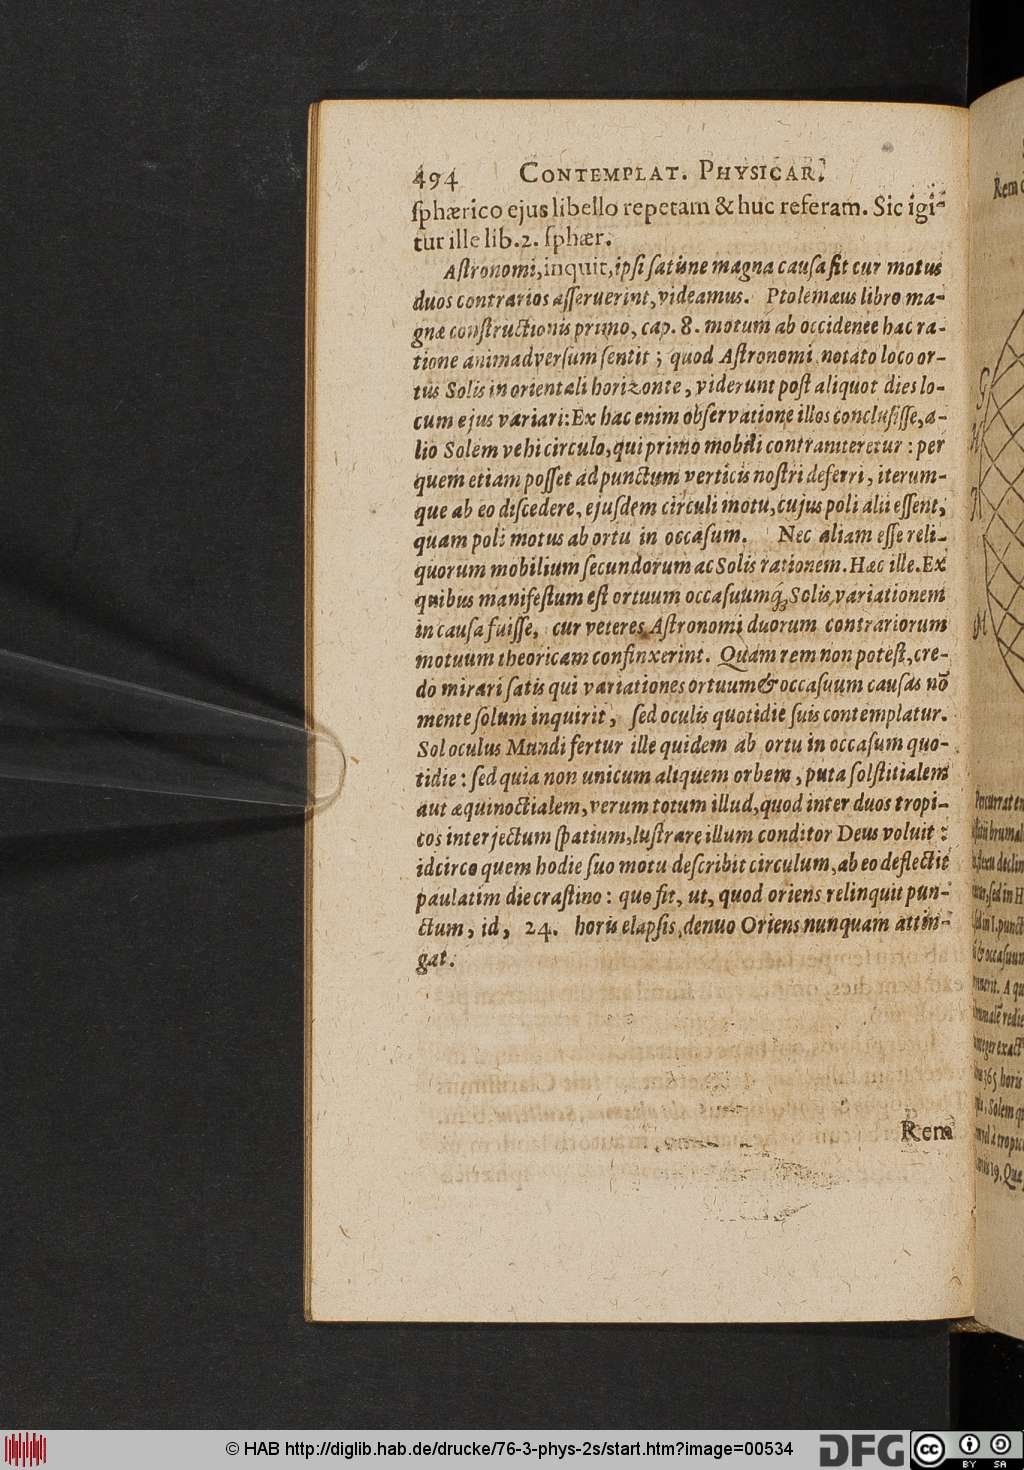 494 CONTEMPLAT. PHYSICAR.
ſphærico ejus libello repetam & huc referam. Sic igi-
tur ille lib. 2. ſphær.
Aſtronomi, inquit, ipſi ſat ùne magna cauſa ſit cur motus
duos contrarios aſſeruerint, videamus. Ptolemæus libro ma-
gnæ conſtructionis primo, cap. 8. motum ab occidente hac ra-
tione animadverſum ſentit ; quod Aſtronomi notato loco or-
tus Solis in orientali horizonte, viderunt poſt aliquot dies lo-
cum ejus variari: Ex hac enim obſervatione illos concluſiſſe, a-
lio Solem vehi circulo, qui primo mobili contraniteretur : per
quem etiam poſſet ad punctum verticis noſtri deferri, iterum-
que ab eo diſcedere, ejuſdem circuli motu, cujus poli alii eſſent,
quam poli motus ab ortu in occaſum. Nec aliam eſſe reli-
quorum mobilium ſecundorum ac Solis rationem. Hæc ille. Ex
quibus manifeſtum eſt ortuum occaſuumq́; Solis variationem
in cauſa fuiſſe, cur veteres Aſtronomi duorum contrariorum
motuum theoricam confinxerint. Quam rem non poteſt, cre-
do mirari ſatis qui variationes ortuum & occaſuum cauſas nō
mente ſolum inquirit, ſed oculis quotidie ſuis contemplatur.
Sol oculus Mundi fertur ille quidem ab ortu in occaſum quo-
tidie : ſed quia non unicum aliquem orbem, puta ſolſtitialem
aut æquinoctialem, verum totum illud, quod inter duos tropi-
cos interjectum ſpatium, luſtrare illum conditor Deus voluit :
idcirco quem hodie ſuo motu deſcribit circulum, ab eo deflectit
paulatim die craſtino : quo fit, ut, quod oriens relinquit pun-
ctum, id, 24. horis elapſis, denuo Oriens nunquam attin-
gat.
Rem
© HAB http://diglib.hab.de/drucke/76-3-phys-2s/start.htm?image=00534
DFG
cc BY SA